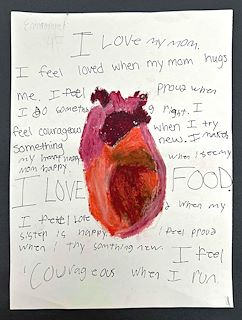 I Love my mom.
I feel loved when my mom hugs
me. I feel proud when
I do someting right. I
feel courageous when I try
something new. I makes
my heart happy when I see my
mom happy.
I LOVE FOOD.
I feel love when my
sister is happy. I feel proud
when I try somthing new.
I feel
Courageous when I run.